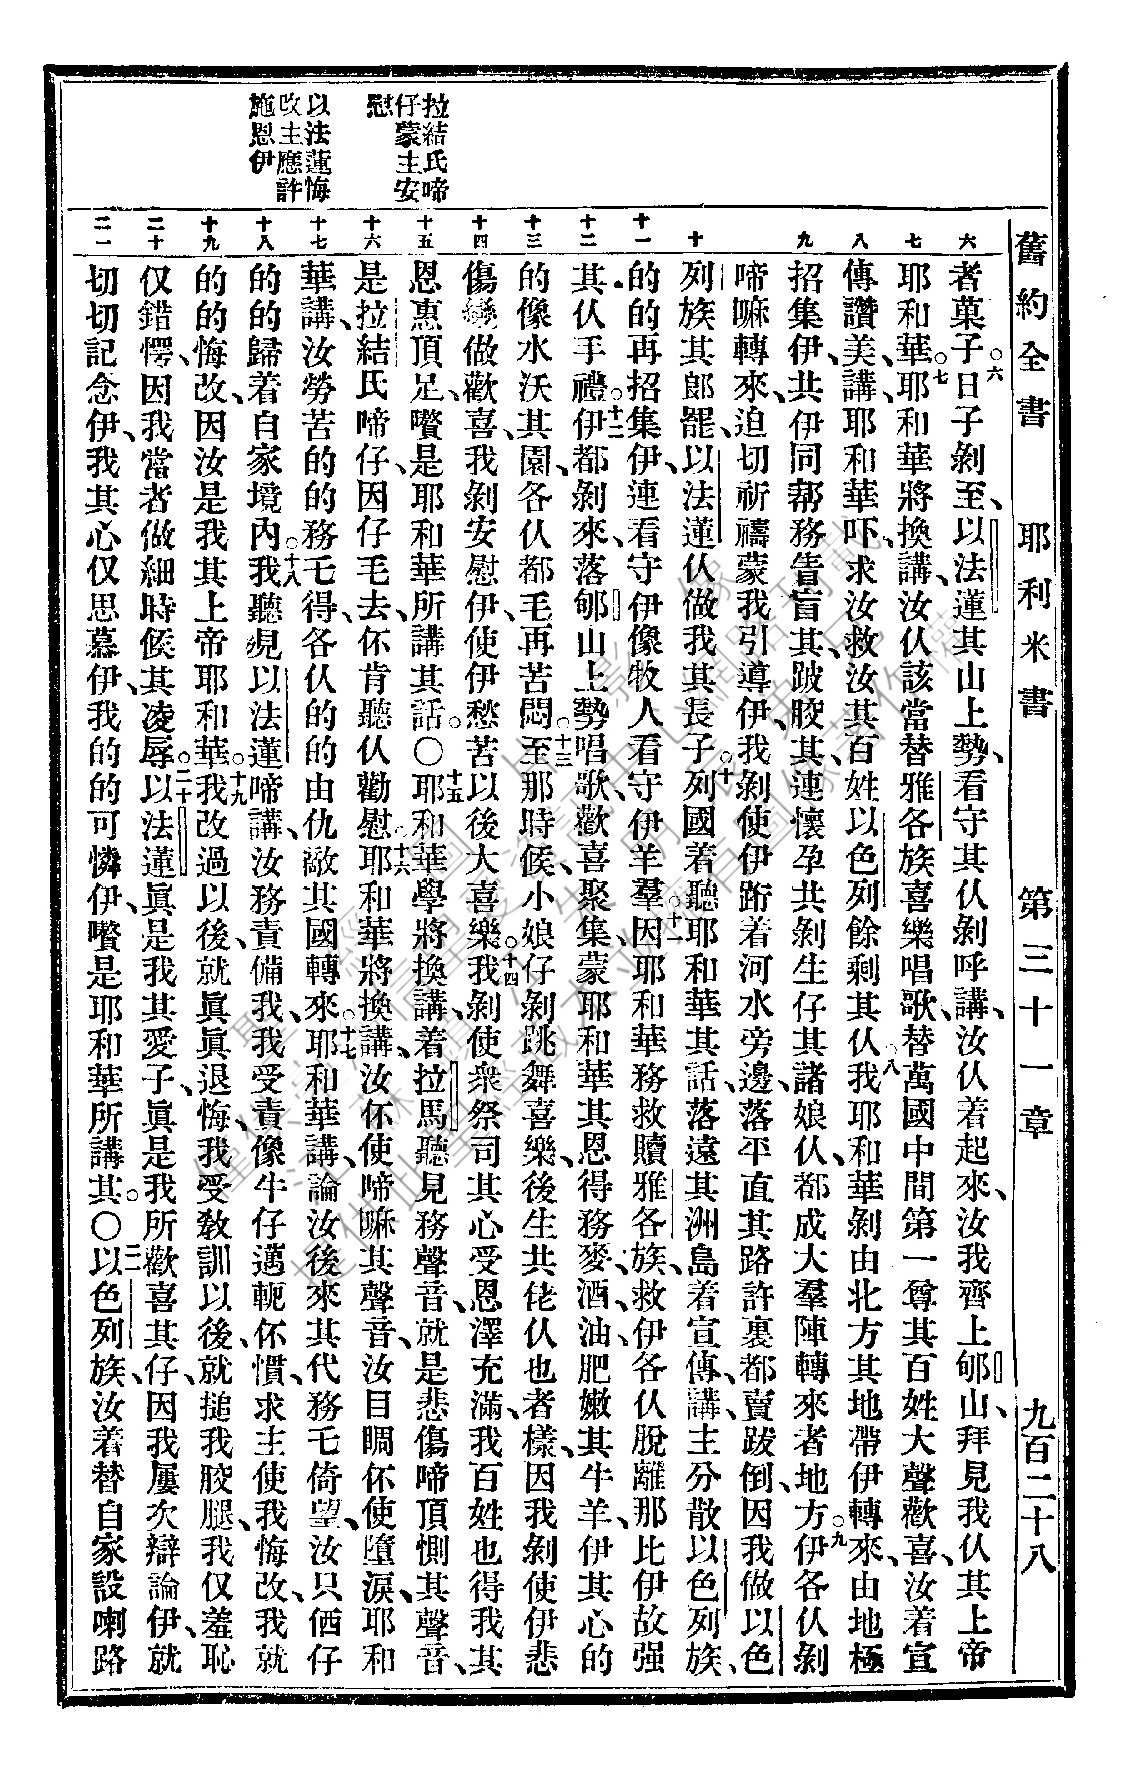 舊約全書 耶利米書 第三十一章 九百二十八
拉結氏啼
仔蒙主安
慰
以法蓮悔
改主應許
施恩伊
六 七 八 九 十 十一 十二 十三 十四 十五 十六 十七 十八 十九 二十 二一
者菓子○六日子剝至、以法蓮其山上勢、看守其仈剝呼講、汝仈着起來、汝我齊上郇山、拜見我仈其上帝
耶和華○七耶和華將換講、汝仈該當替雅各族喜樂唱歌、替萬國中間第一尊其百姓大聲歡喜、汝着宣
傳讚美、講耶和華吓、求汝救汝其百姓以色列餘剩其仈○八我耶和華剝由北方其地帶伊轉來、由地極
招集伊、共伊同幇務眚盲其、跛骹其、連懷孕共剝生仔其諸娘仈、都成大羣陣轉來者地方○九伊各仈剝
啼嘛轉來、迫切祈禱蒙我引導伊、我剝使伊跨着河水旁邊、落平直其路許裏都賣跋倒、因我做以色
列族其郎罷、以法蓮仈做我其長子○十列國着聽耶和華其話、落遠其洲島着宣傳、講主分散以色列族、
的的再招集伊、連看守伊像牧人看守伊羊羣○十一因耶和華務救贖雅各族、救伊各仈脫離那比伊故强
其仈手禮○十二伊都剝來、落郇山上勢唱歌、歡喜聚集、蒙耶和華其恩得務麥、酒、油、肥嫩其牛羊、伊其心的
的像水沃其園、各仈都毛再苦悶○十三至那時候、小娘仔剝跳舞喜樂、後生共佬仈也者樣、因我剝使伊悲
傷變做歡喜、我剝安慰伊、使伊愁苦以後大喜樂○十四我剝使衆祭司其心受恩澤充滿、我百姓也得我其
恩惠頂足、嚽是耶和華所講其話○○十五耶和華學將換講、着拉馬聽見務聲音、就是悲傷啼頂惻其聲音、
是拉結氏啼仔、因仔毛去、伓肯聽仈勸慰○十六耶和華將換講、汝伓使啼嘛其聲音、汝目睭伓使墮淚、耶和
華講、汝勞苦的的務乇得、各仈的的由仇敵其國轉來○十七耶和華講、論汝後來其代務乇倚望、汝只佰仔
的的歸着自家境內○十八我聽見以法蓮啼講、汝務責備我、我受責像牛仔邁軛伓慣、求主使我悔改、我就
的的悔改、因汝是我其上帝耶和華○十九我改過以後、就眞眞退悔、我受敎訓以後、就搥我骹腿、我仅羞恥
仅錯愕、因我當者做細時候其凌辱○二十以法蓮眞是我其愛子、眞是我所歡喜其仔、因我屢次辯論伊、就
切切記念伊、我其心仅思慕伊、我的的可憐伊、嚽是耶和華所講其○○二一以色列族、汝着替自家設喇路